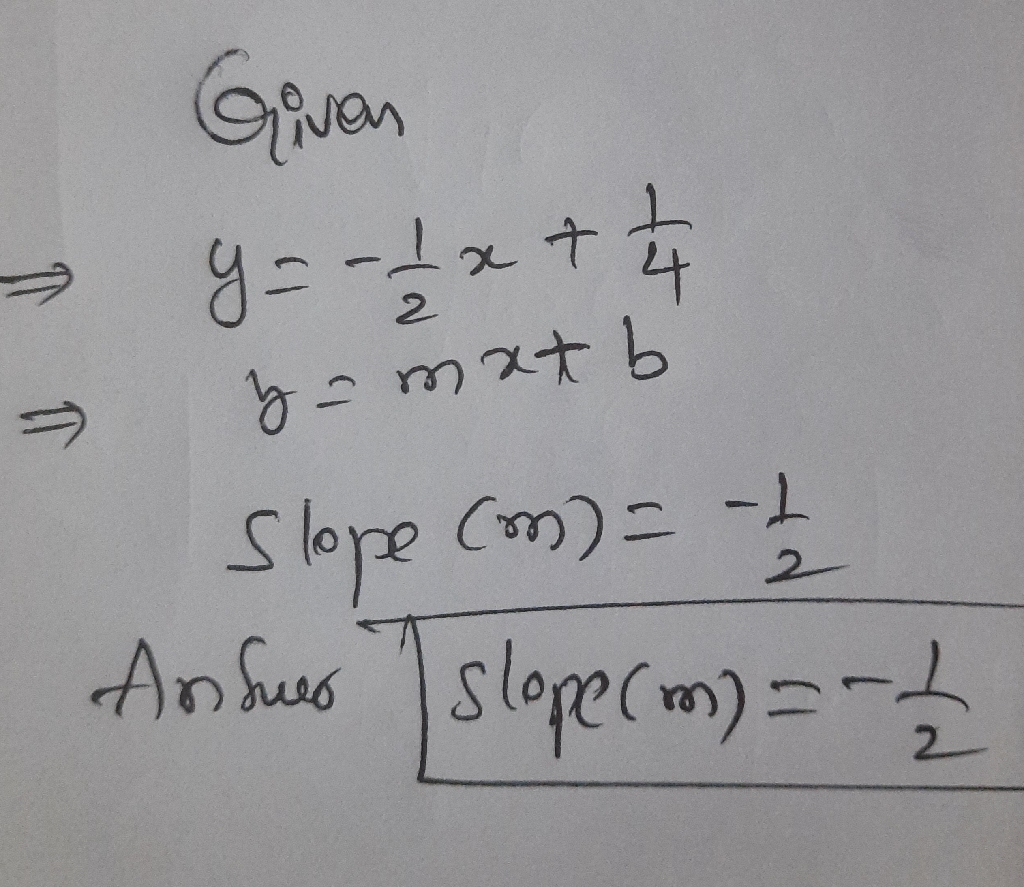 Given
⇒ y = -1/2 x + 1/4
⇒ y = mx + b
Slope (m) = -1/2
Answer Slope(m) = -1/2